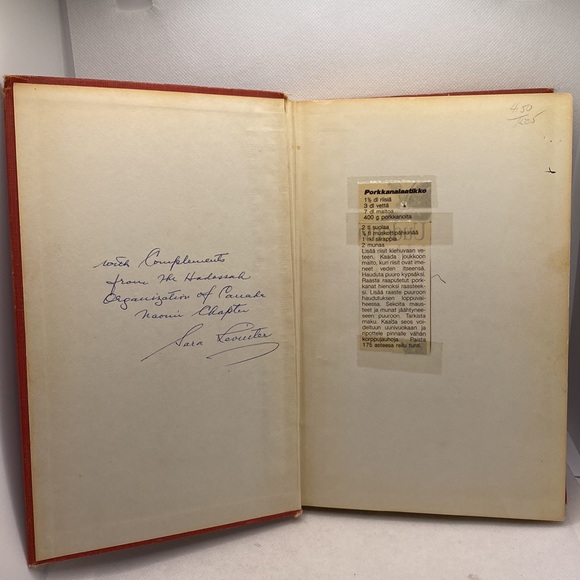 with Complements
from the Hadassah
Organization of Canada
Naomi Chapter
Sara
4.50
Porkkanalaatikko
1½ dl riisiä
3 dl vettä
7 dl maitoa
400 g porkkanoita
2 ts suolaa
muskottipähkinää
1 rkl siirappia
2 munaa
Lisää riisit kiehuvaan ve-
teen. Kaada joukkoon
maito, kun riisit ovat ime-
neet veden itseensä.
Hauduta puuro kypsäksi.
Raasta raaputetut pork-
kanat hienoksi raasteek-
si. Lisää raaste puuroon
haudutuksen loppuvai-
heessa. Sekoita mausteet
ja munat jäähtynee-
seen puuroon. Tarkasta
maku. Kaada seos voi-
deltuun uunivuokaan ja
ripottele pinnalle vähän
korppujauhoja. Paista
175 asteessa reilu tunti.